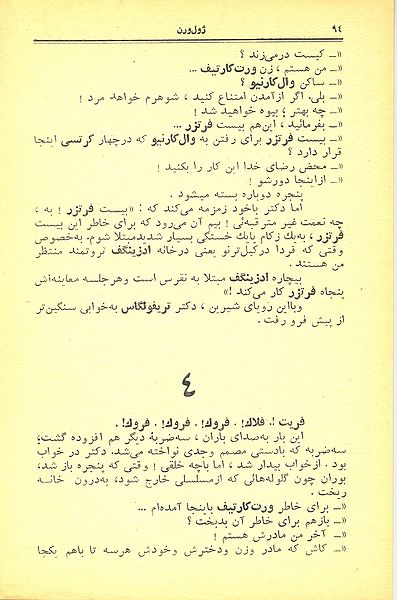 ۹۴
ژول‌ورن
«ــ کیست درمی‌زند ؟
«ــ من هستم ، زن ورت‌کارتیف ...
«ــ ساکن وال‌کارنیو ؟
«ــ بلی. اگر ازآمدن امتناع کنید ، شوهرم خواهد مرد !
«ــ چه بهتر ؛ بیوه خواهید شد !
«ــ بفرمائید ، این‌هم بیست فرتزر ...
«ــ بیست فرتزر برای رفتن به وال‌کارنیو که درچهار کرتسی اینجا
قرار دارد ؟
«ــ محض رضای خدا این کار را بکنید !
«ــ ازاینجا دورشو !
پنجره دوباره بسته میشود .
اما دکتر باخود زمزمه می‌کند که : «بیست فرتزر ! به ،
چه نعمت غیر مترقبه‌ئی ! بیم آن می‌رود که برای خاطر این بیست
فرتزر ، به‌یك زکام یایك خستگی بسیار شدیدمبتلا شوم. به‌خصوص
وقتی که فردا درکیل‌ترنو یعنی درخانه ادزینگف ثروتمند منتظر
من هستند .
بیچاره ادزینگف مبتلا به نقرس است وهرجلسه معاینه‌اش
پنجاه فرتزر کار می‌کند !»
وبااین رویای شیرین ، دکتر تریفولگاس به‌خوابی سنگین‌تر
از پیش فرو رفت .
٤
فریت !. فلاك! . فروك! . فروك! . فروك! .
این بار به‌صدای باران ، سه‌ضربهٔ دیگر هم افزوده گشت؛
سه‌ضربه که بادستی مصمم وجدی نواخته می‌شد. دکتر در خواب
بود . ازخواب بیدار شد ، اما باچه خلقی ! وقتی که پنجره باز شد،
بوران چون گلوله‌هائی که ازمسلسلی خارج شود، به‌درون خانه
ریخت .
«ــ برای خاطر ورت‌کارتیف باینجا آمده‌ام ...
«ــ بازهم برای خاطر آن بدبخت ؟
«ــ آخر من مادرش هستم !
«ــ کاش که مادر وزن ودخترش وخودش هرسه تا باهم یکجا